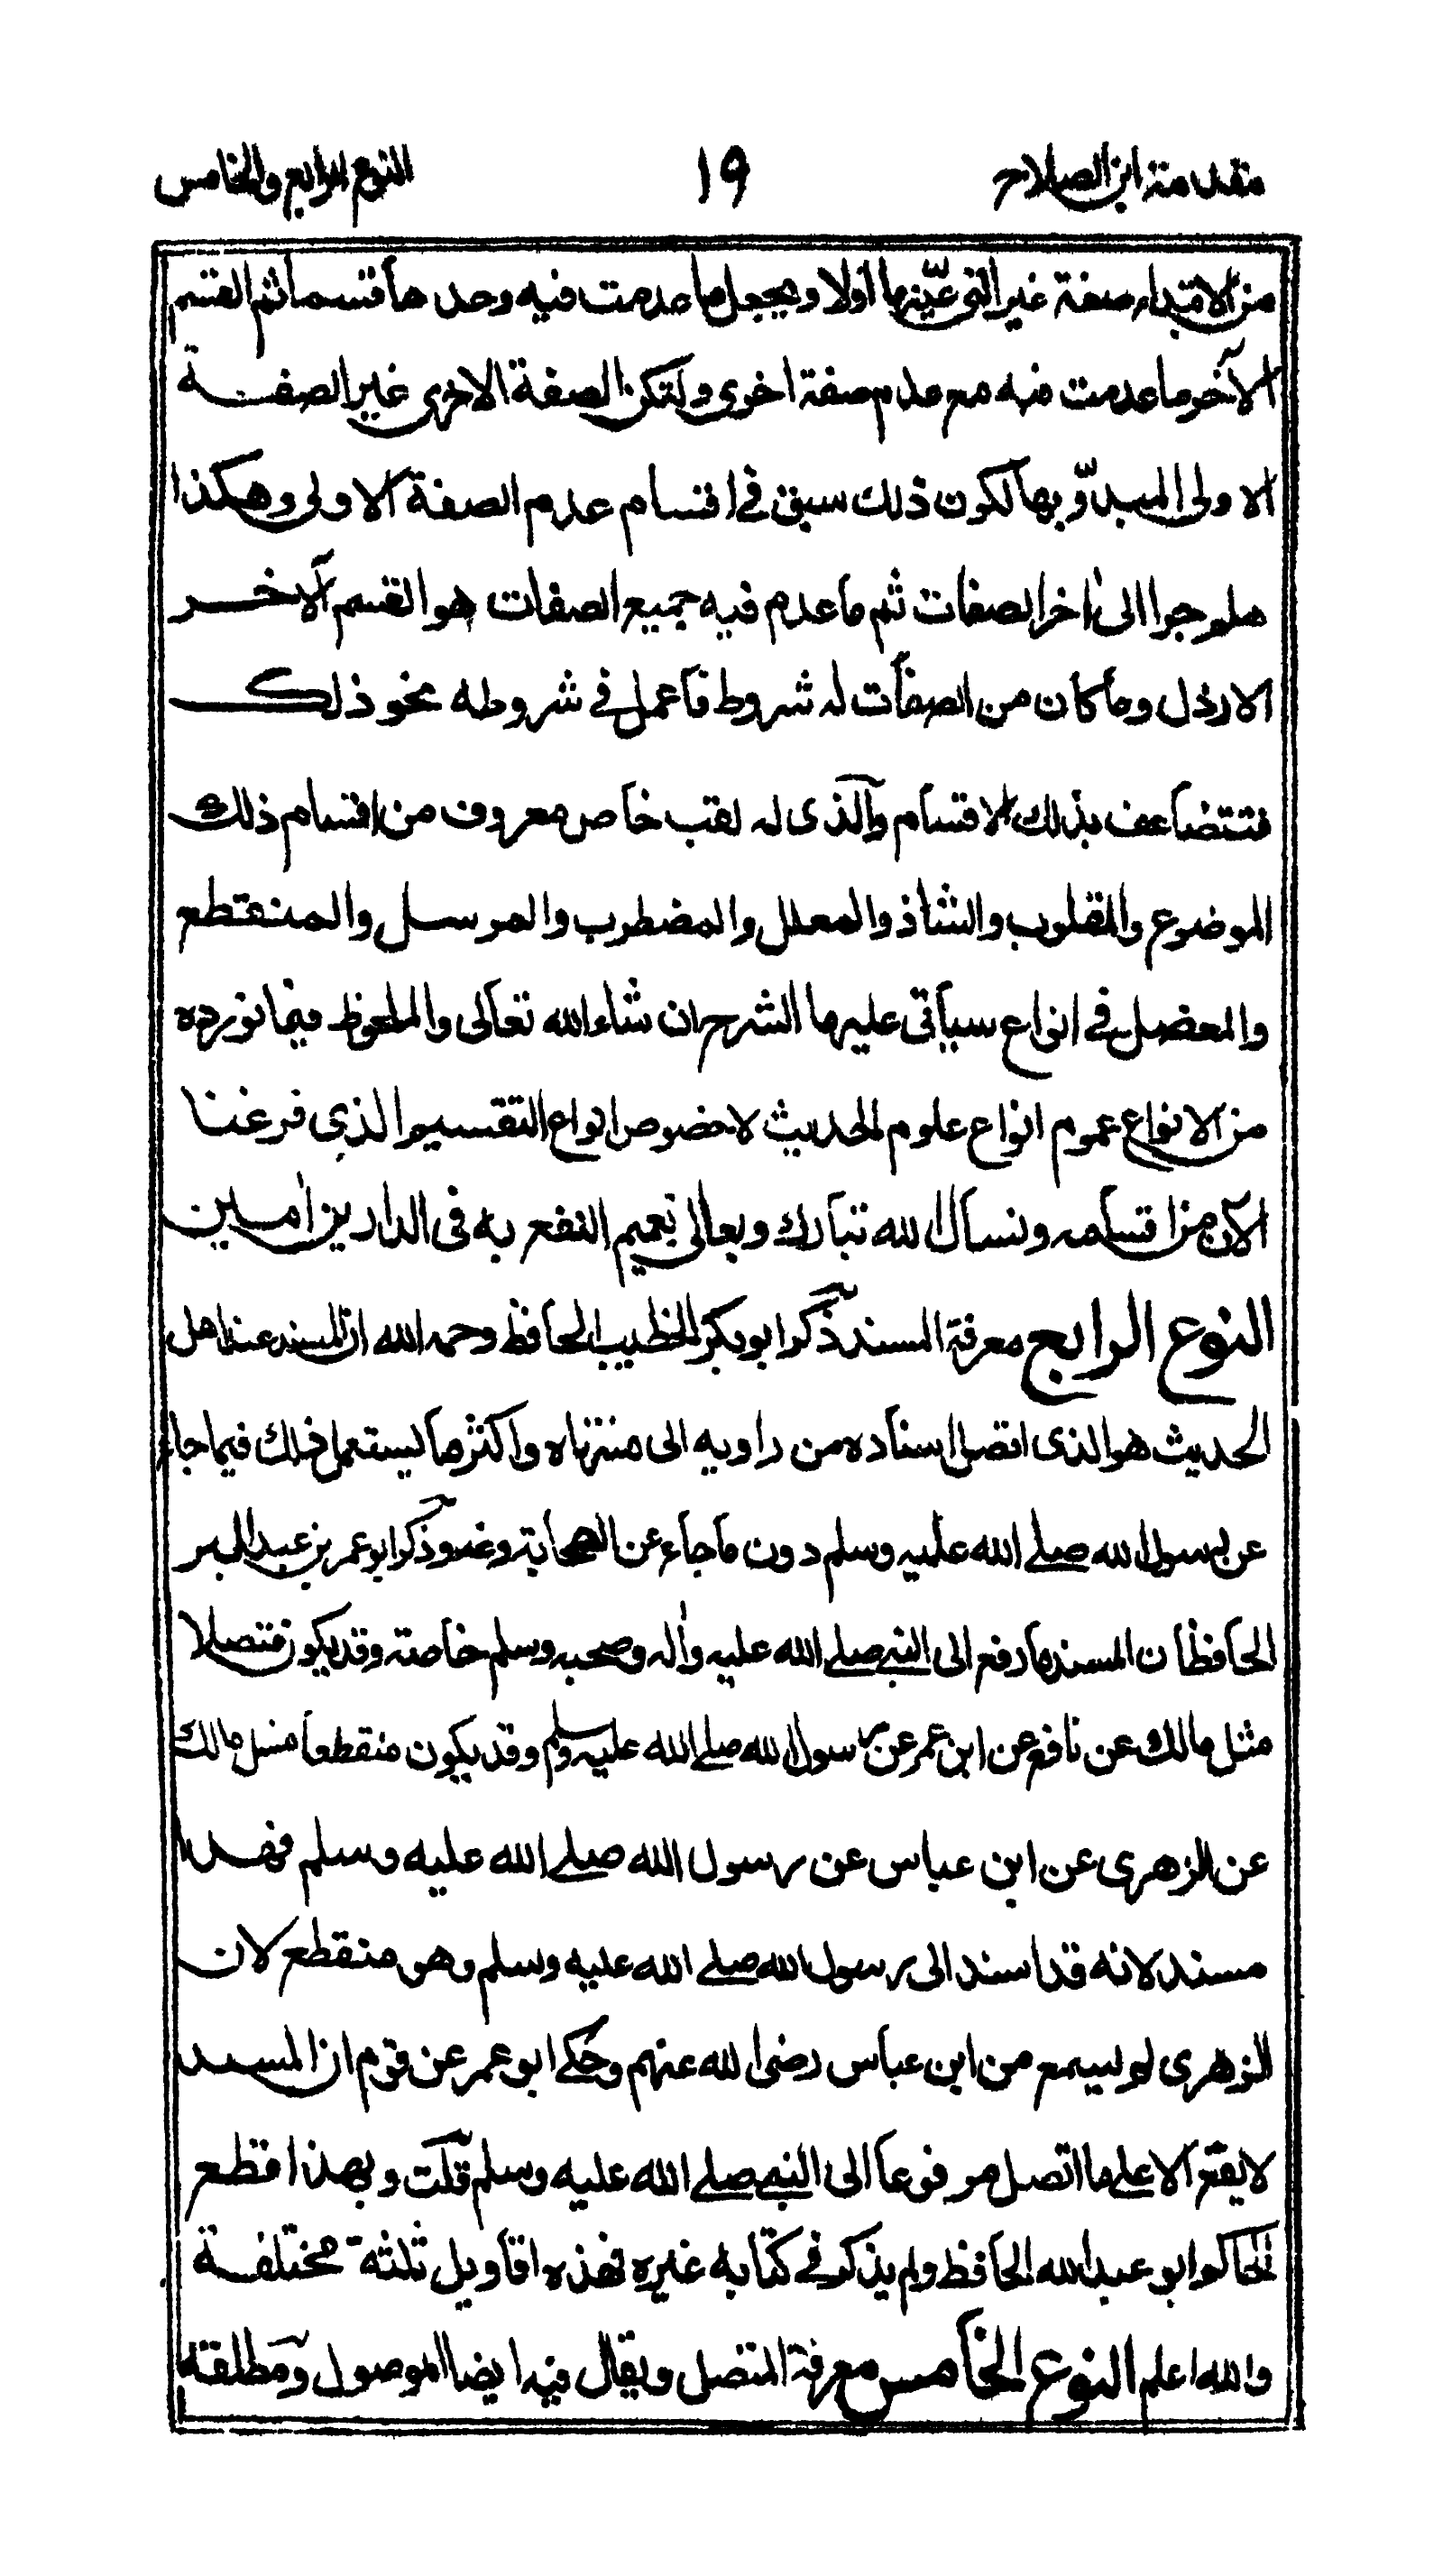 مقدمة ابن الصلاح ١٩ النوع الرابع والخامس
من الابتداء صفة غير التي عيّنها اولا ويجعل ما عدمت فيه وحدها قسما ثم القسم
الآخر ما عدمت فيه مع عدم صفة اخرى ولتكن الصفة الاخرى غير الصفة
الاولى المبدوّ بها لكون ذلك سبق في اقسام عدم الصفة الاولى وهكذا
هلم جرا الى اٰخر الصفات ثم ما عدم فيه جميع الصفات هو القسم الآخر
الارذل وما كان من الصفات له شروط فاعمل في شروطه نحو ذلك
فتتضاعف بذلك الاقسام والذى له لقب خاص معروف من اقسام ذلك
الموضوع والمقلوب والشاذ والمعلل والمضطرب والمرسل والمنقطع
والمعضل في انواع سيأتى عليها الشرح ان شاء الله تعالى والملحوظ فيما نورده
من الانواع عموم انواع علوم الحديث لا خصوص انواع التقسيم الذى فرغنا
الآن من اقسامه ونسأل الله تبارك وتعالى تعميم النفع به فى الدارين اٰمين
النوع الرابع معرفة المسند ذكر ابو بكر الخطيب الحافظ رحمه الله ان المسند عند اهل
الحديث هو الذى اتصل اسناده من راويه الى منتهاه واكثر ما يستعمل ذلك فيما جاء
عن رسول الله صلے الله عليه وسلم دون ما جاء عن الصحابة وغيرهم وذكر ابو عمر بن عبد البر
الحافظ ان المسند ما رفع الى النبي صلے الله عليه واٰله وصحبه وسلم خاصة وقد يكون متصلا
مثل مالك عن نافع عن ابن عمر عن رسول الله صلے الله عليه وسلم وقد يكون منقطعا مثل مالك
عن الزهرى عن ابن عباس عن رسول الله صلے الله عليه وسلم فهذا
مسند لانه قد اسند الى رسول الله صلے الله عليه وسلم وهو منقطع لان
الزهرى لم يسمع من ابن عباس رضى الله عنهم وحكے ابو عمر عن قوم ان المسند
لا يقع الا علے ما اتصل مرفوعا الى النبے صلے الله عليه وسلم قلت وبهذا قطع
الحاكم ابو عبد الله الحافظ ولم يذكر في كتابه غيره فهذه اقاويل ثلثة مختلفة
والله اعلم النوع الخامس معرفة المتصل ويقال فيه ايضا الموصول ومطلقه